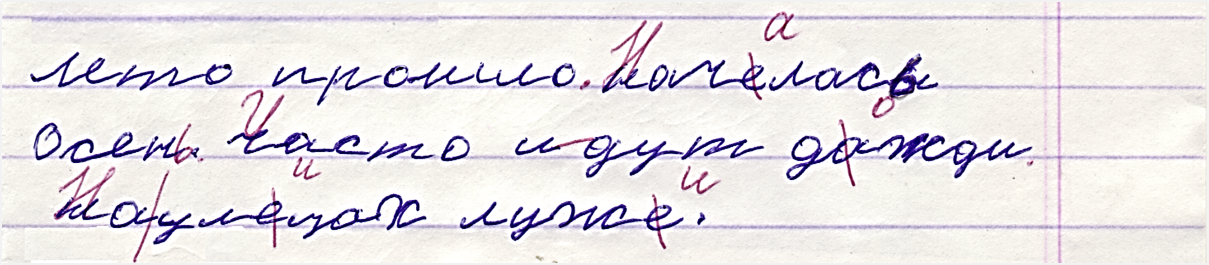 лето прошло. Начелась
осень. Часто идут дажди.
Наулецах луже.